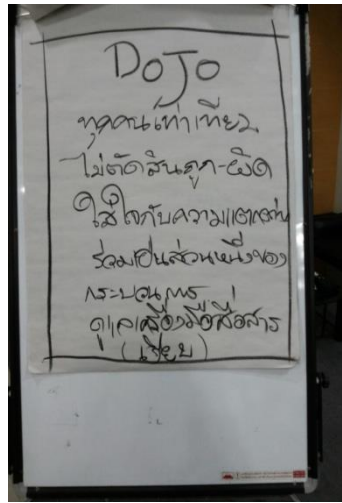 DoJo
ทุกคนเท่าเทียม
ไม่ตัดสินถูก-ผิด
ใส่ใจกับความแตกต่าง
ร่วมเป็นส่วนหนึ่งของ
กระบวนการ
ดูแลเครื่องมือสื่อสาร
(เงียบ)